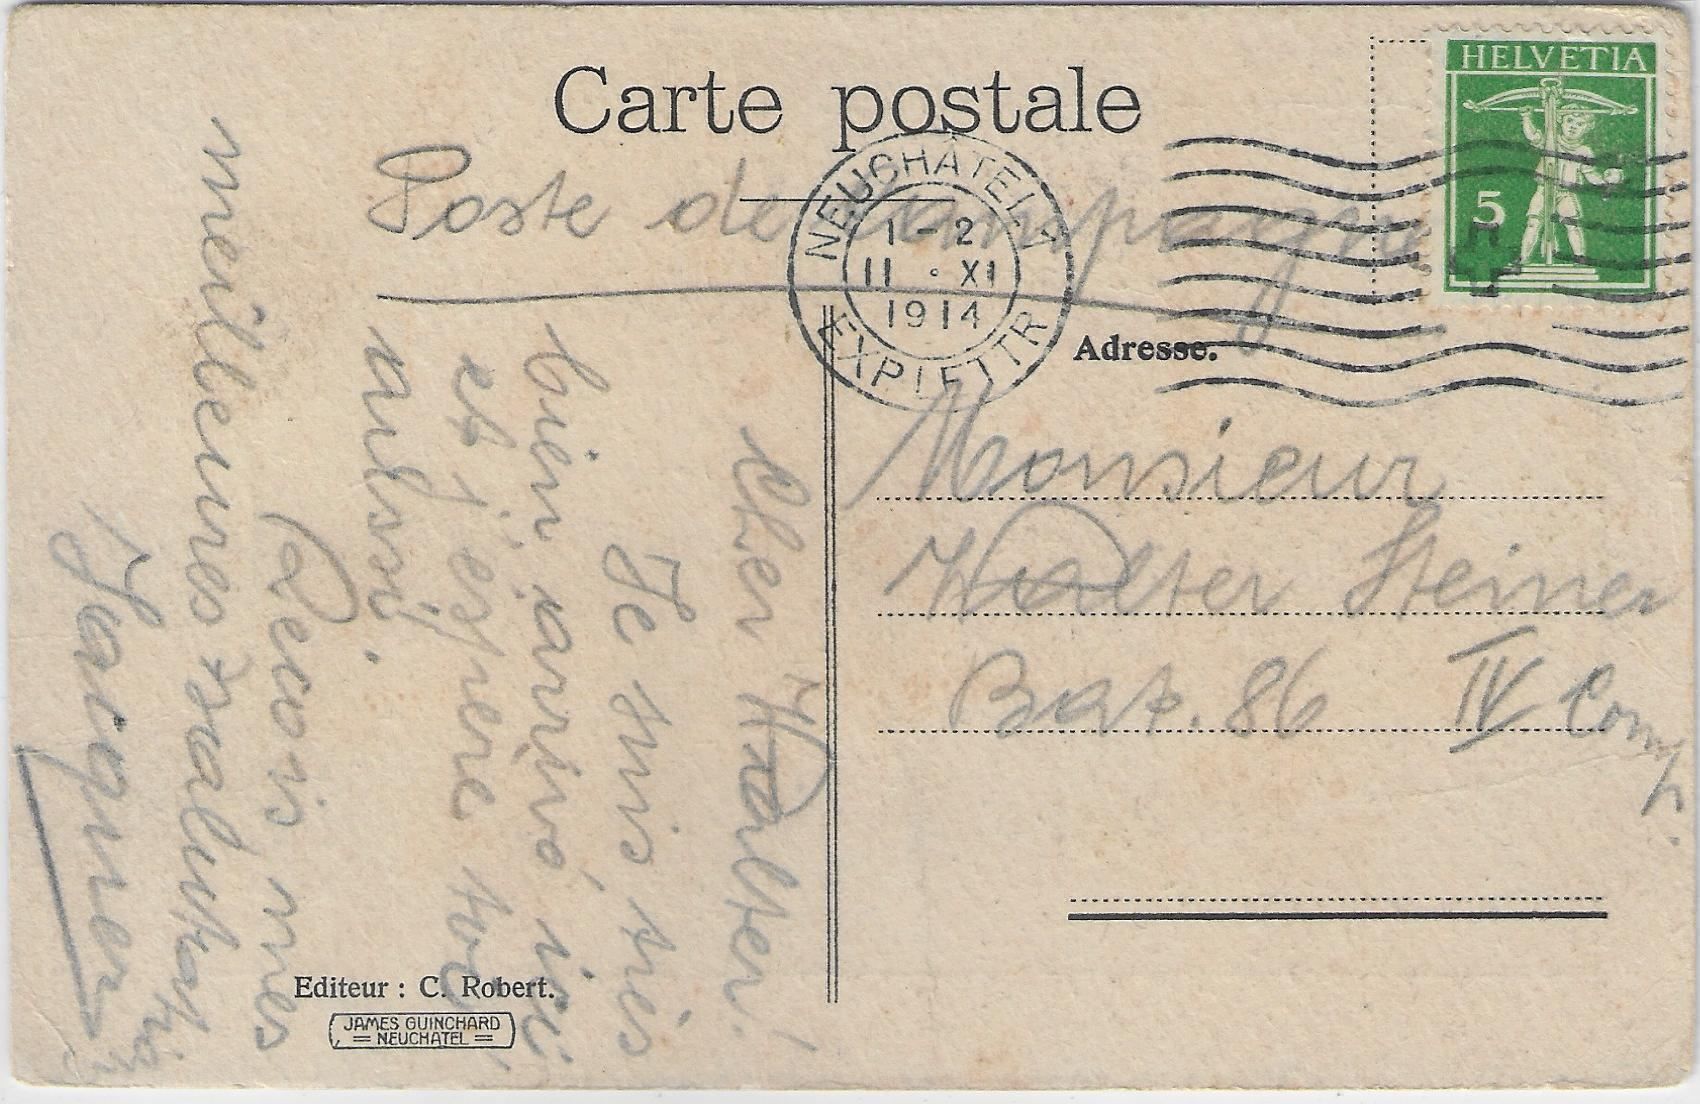 Carte postale
HELVETIA
5
Poste de campagne
NEUCHÂTEL 1
1-2
11 . XI
1914
EXP. LETTR.
Adresse.
Monsieur
Walter Steiner
Bat. 86 IV Comp.
Cher Walter!
Je suis très
bien arrivé, ici
et j'espère toi
aussi.
Reçois mes
meilleures salutations
Editeur : C. Robert.
JAMES GUINCHARD
= NEUCHATEL =